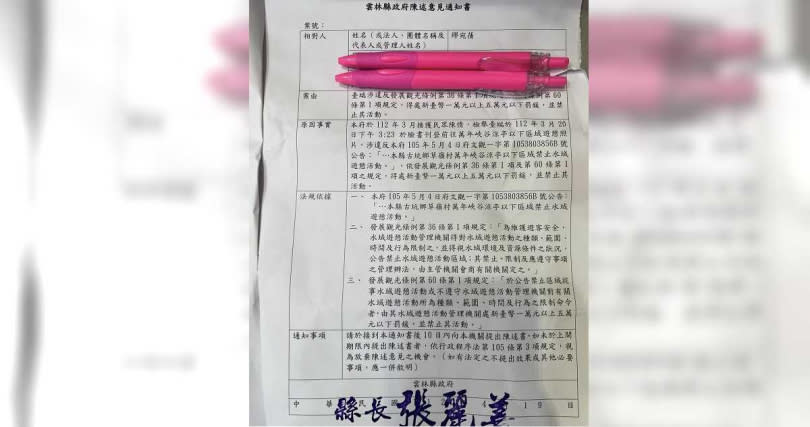 雲林縣政府陳述意見通知書
案號：
相對人
姓名（或法人、團體名稱及
代表人或管理人姓名）
繆宛蒨
案由
臺端涉違反發展觀光條例第36條第1項
第60
條第1項規定，得處新臺幣一萬元以上五萬元以下罰鍰，並禁
止其活動。
原因事實
本府於112年3月接獲民眾陳情，檢舉臺端於112年3月26
日下午3:23於臉書刊登前往萬年峽谷涼亭以下區域遊憩照
片，涉違反本府105年5月4日府文觀一字第1053803856B號
公告：「…本縣古坑鄉草嶺村萬年峽谷涼亭以下區域禁止水域
遊憩活動。」，依發展觀光條例第36條第1項及第60條第1
項之規定，得處新臺幣一萬元以上五萬元以下罰鍰，並禁止其
活動。
法規依據
一、本府105年5月4日府文觀一字第1053803856B號公告：
「…本縣古坑鄉草嶺村萬年峽谷涼亭以下區域禁止水域
遊憩活動。」
二、發展觀光條例第36條第1項規定：「為維護遊客安全，
水域遊憩活動管理機關得對水域遊憩活動之種類、範圍、
時間及行為限制之，並得視水域環境及資源條件之狀況，
公告禁止水域遊憩活動區域；其禁止、限制及應遵守事項
之管理辦法，由主管機關會商有關機關定之。」
三、發展觀光條例第60條第1項規定：「於公告禁止區域從
事水域遊憩活動或不遵守水域遊憩活動管理機關對有關
水域遊憩活動所為種類、範圍、時間及行為之限制命令
者，由其水域遊憩活動管理機關處新臺幣一萬元以上五萬
元以下罰鍰，並禁止其活動。」
通知事項
請於接到本通知書後10日內向本機關提出陳述書，如未於上開
期限內提出陳述書者，依行政程序法第105條第3項規定，視
為放棄陳述意見之機會。（如有法定之不提出效果或其他必要
事項，應一併敘明）
雲林縣政府
中華民國 4 19日
縣長 張麗善